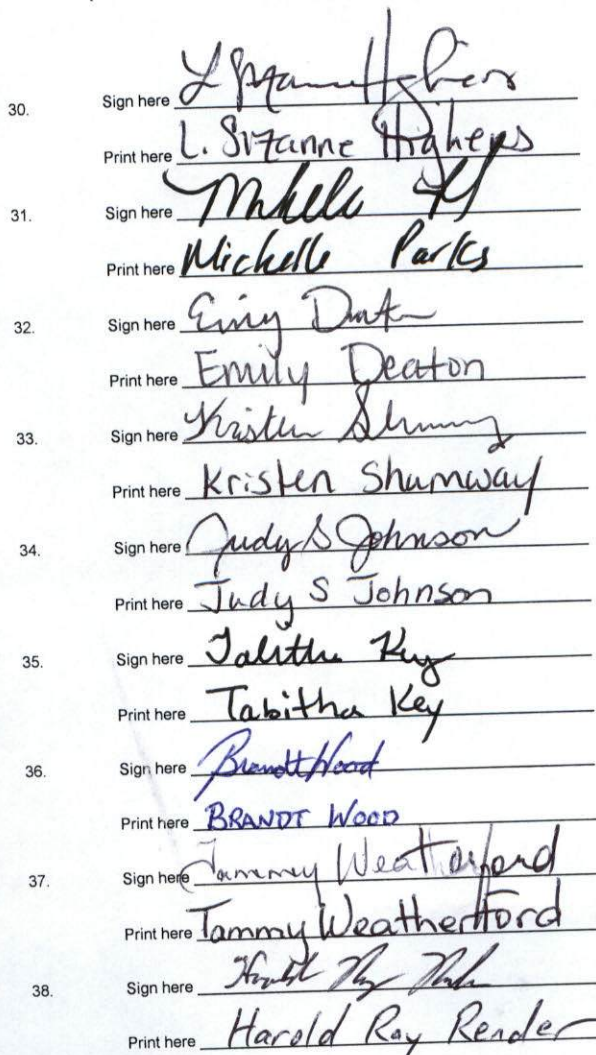 30. Sign here L Suzanne Highers
Print here L. Suzanne Highers
31. Sign here Michelle
Print here Michelle Parks
32. Sign here Emily Deaton
Print here Emily Deaton
33. Sign here Kristen Shumway
Print here Kristen Shumway
34. Sign here Judy S Johnson
Print here Judy S Johnson
35. Sign here Tabitha Key
Print here Tabitha Key
36. Sign here Brandt Wood
Print here BRANDT WOOD
37. Sign here Tammy Weatherford
Print here Tammy Weatherford
38. Sign here
Print here Harold Ray Render